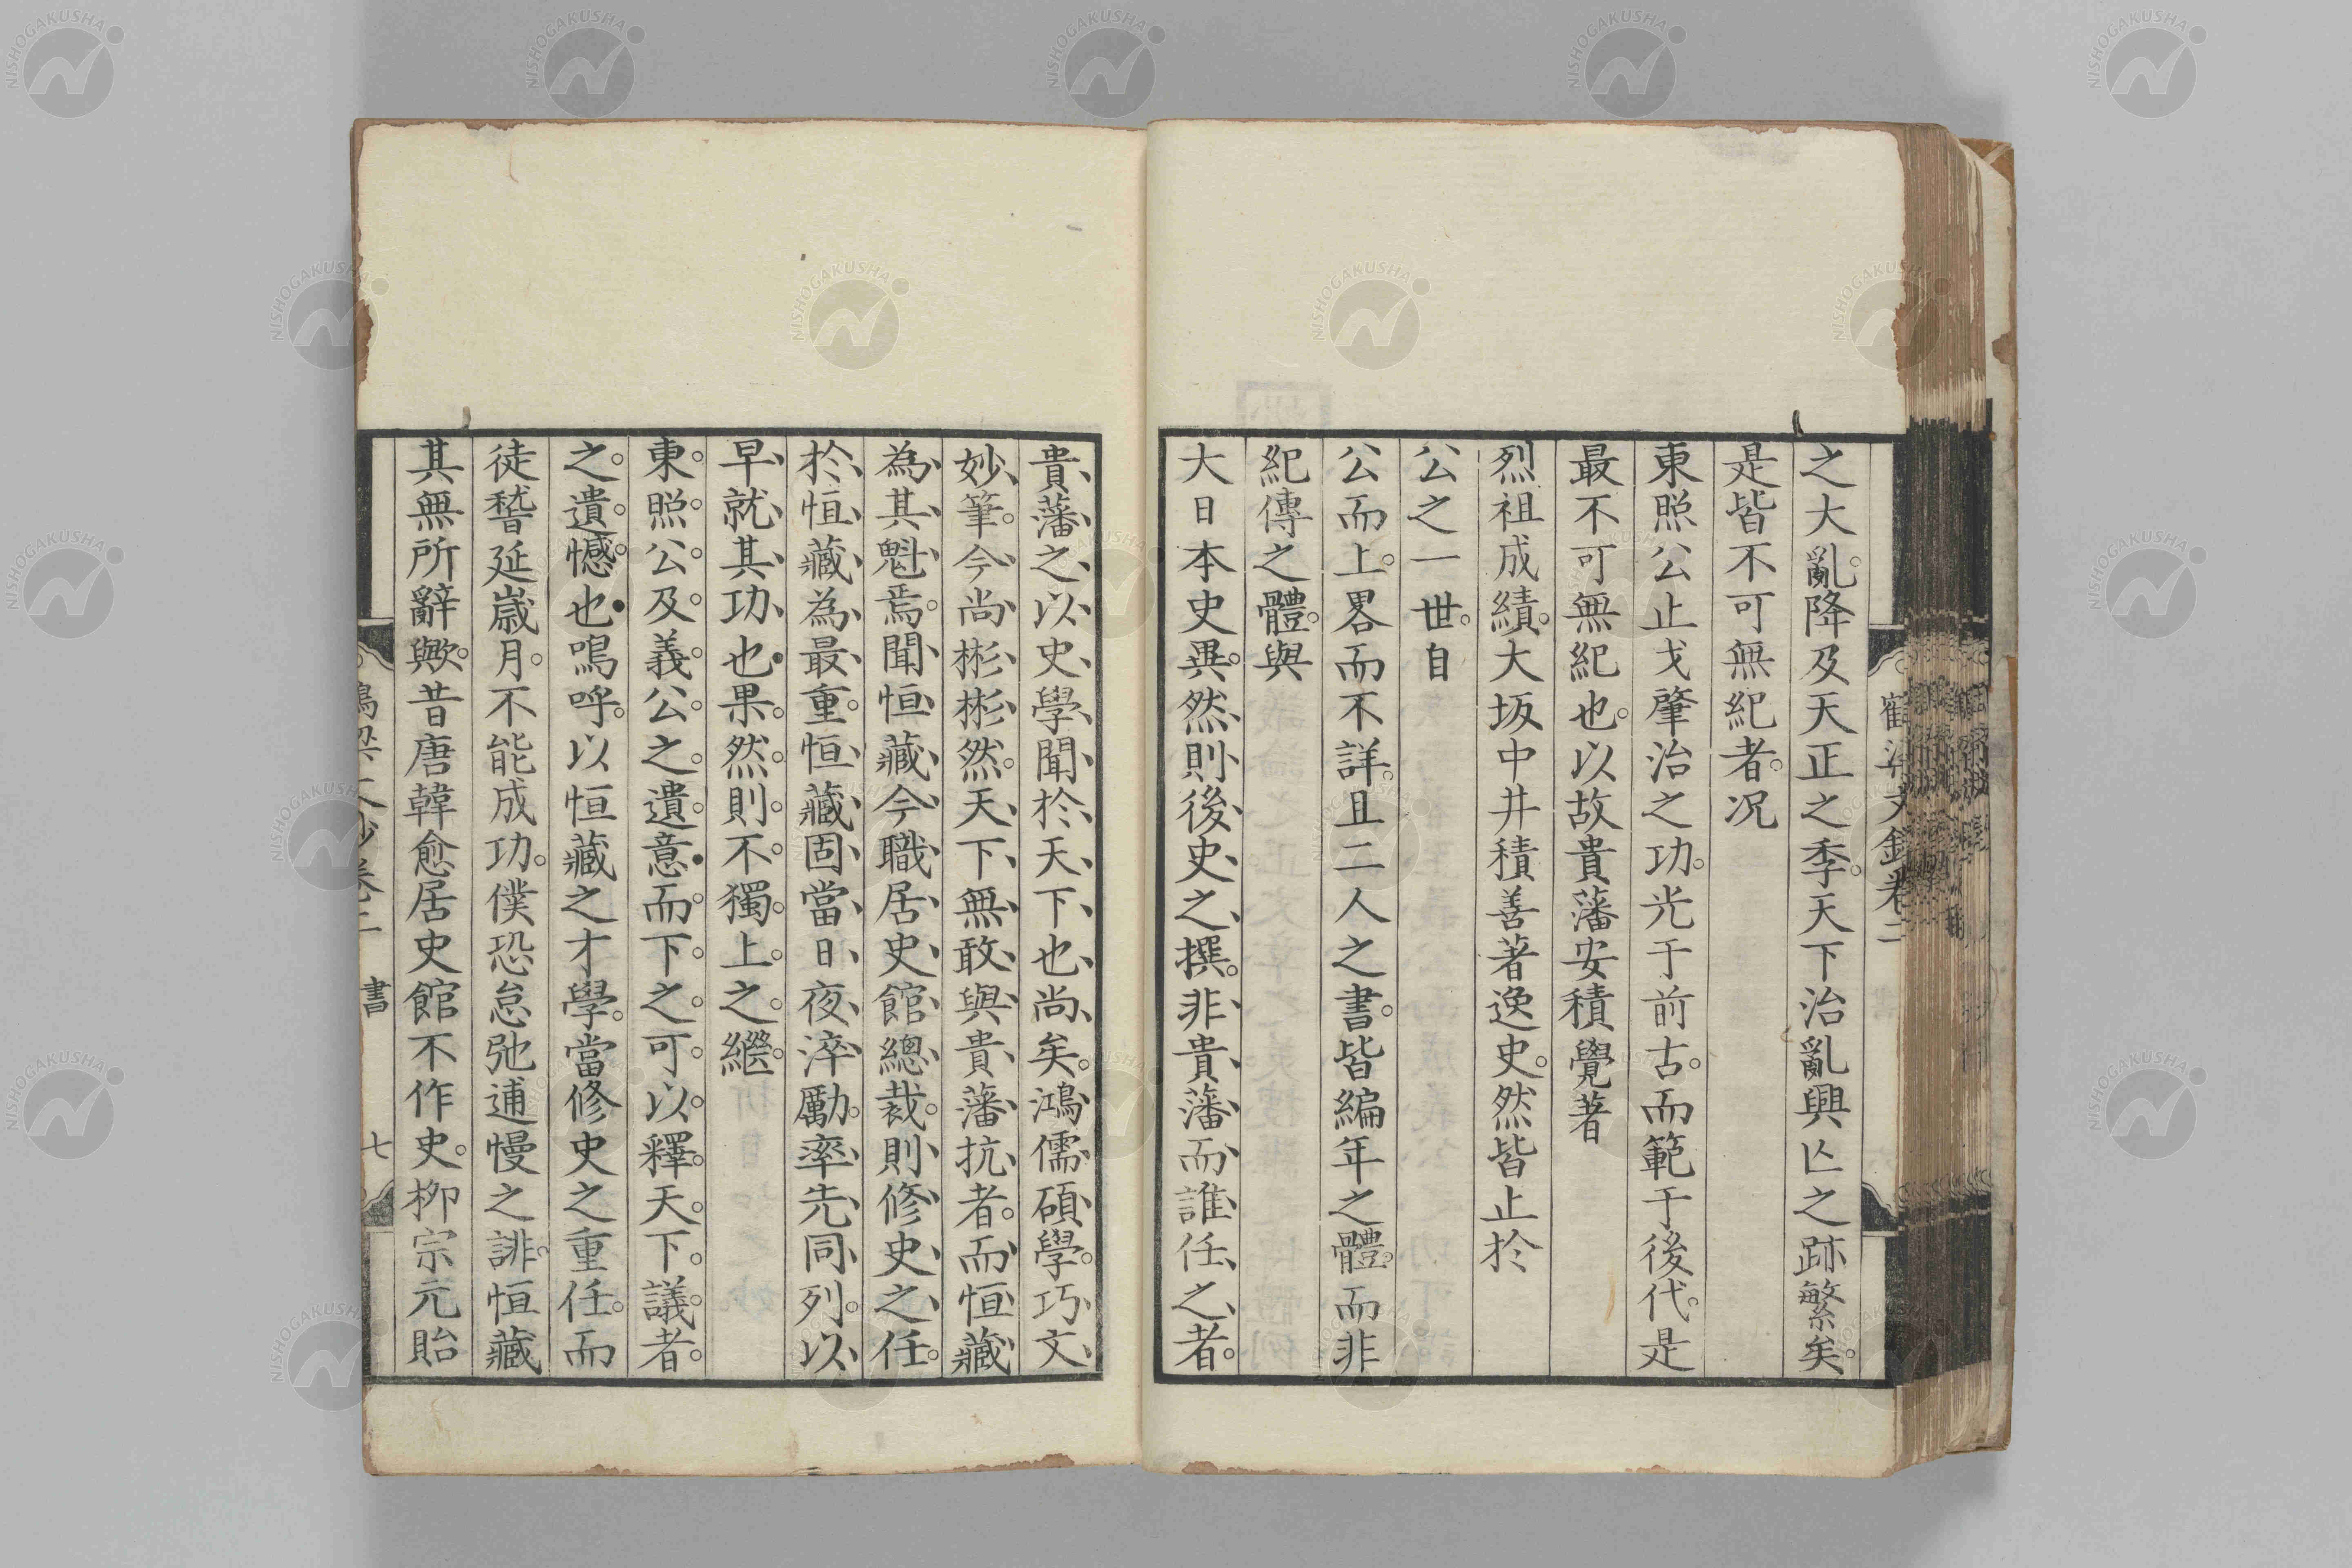 之大亂。降及天正之季。天下治亂興亾之跡繁矣。
是皆不可無紀者。况
東照公止戈肇治之功。光于前古。而範于後代。是
最不可無紀也。以故貴藩安積覺著
烈祖成績。大坂中井積善著逸史。然皆止於
公之一世。自
公而上。畧而不詳。且二人之書。皆編年之體。而非
紀傳之體。與
大日本史異。然則後史之撰。非貴藩而誰任之者。
貴藩之以史學聞於天下也尚矣。鴻儒碩學。巧文
妙筆。今尚彬彬然。天下無敢與貴藩抗者。而恒藏
為其魁焉。聞恒藏今職居史館總裁。則修史之任。
於恒藏為最重。恒藏固當日夜淬勵。率先同列。以
早就其功也。果然則不獨上之繼
東照公及義公之遺意。而下之可以釋天下議者
之遺憾也。嗚呼。以恒藏之才學。當修史之重任。而
徒稽延歲月。不能成功。僕恐怠弛逋慢之誹。恒藏
其無所辭歟。昔唐韓愈居史館不作史。柳宗元貽
鶴梁文鈔卷二
書
七
NISHOGAKUSHA